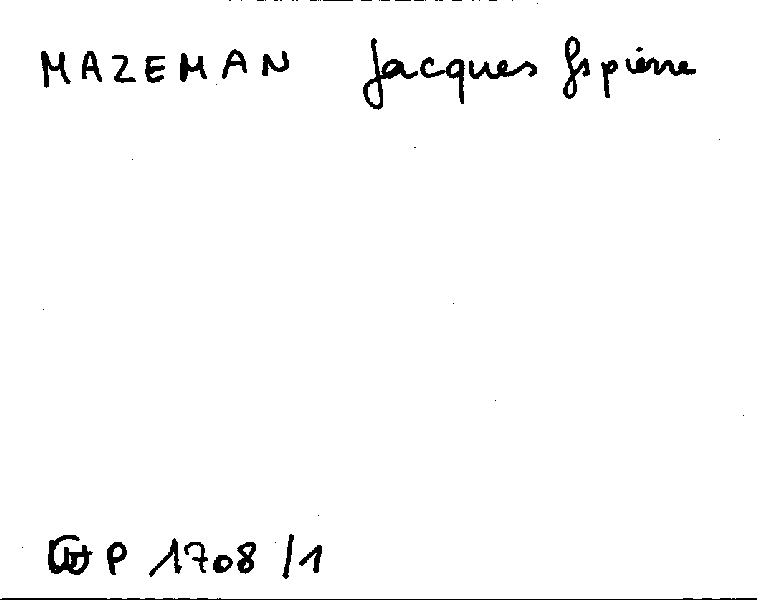 MAZEMAN Jacques fs pierre
P 1708/1